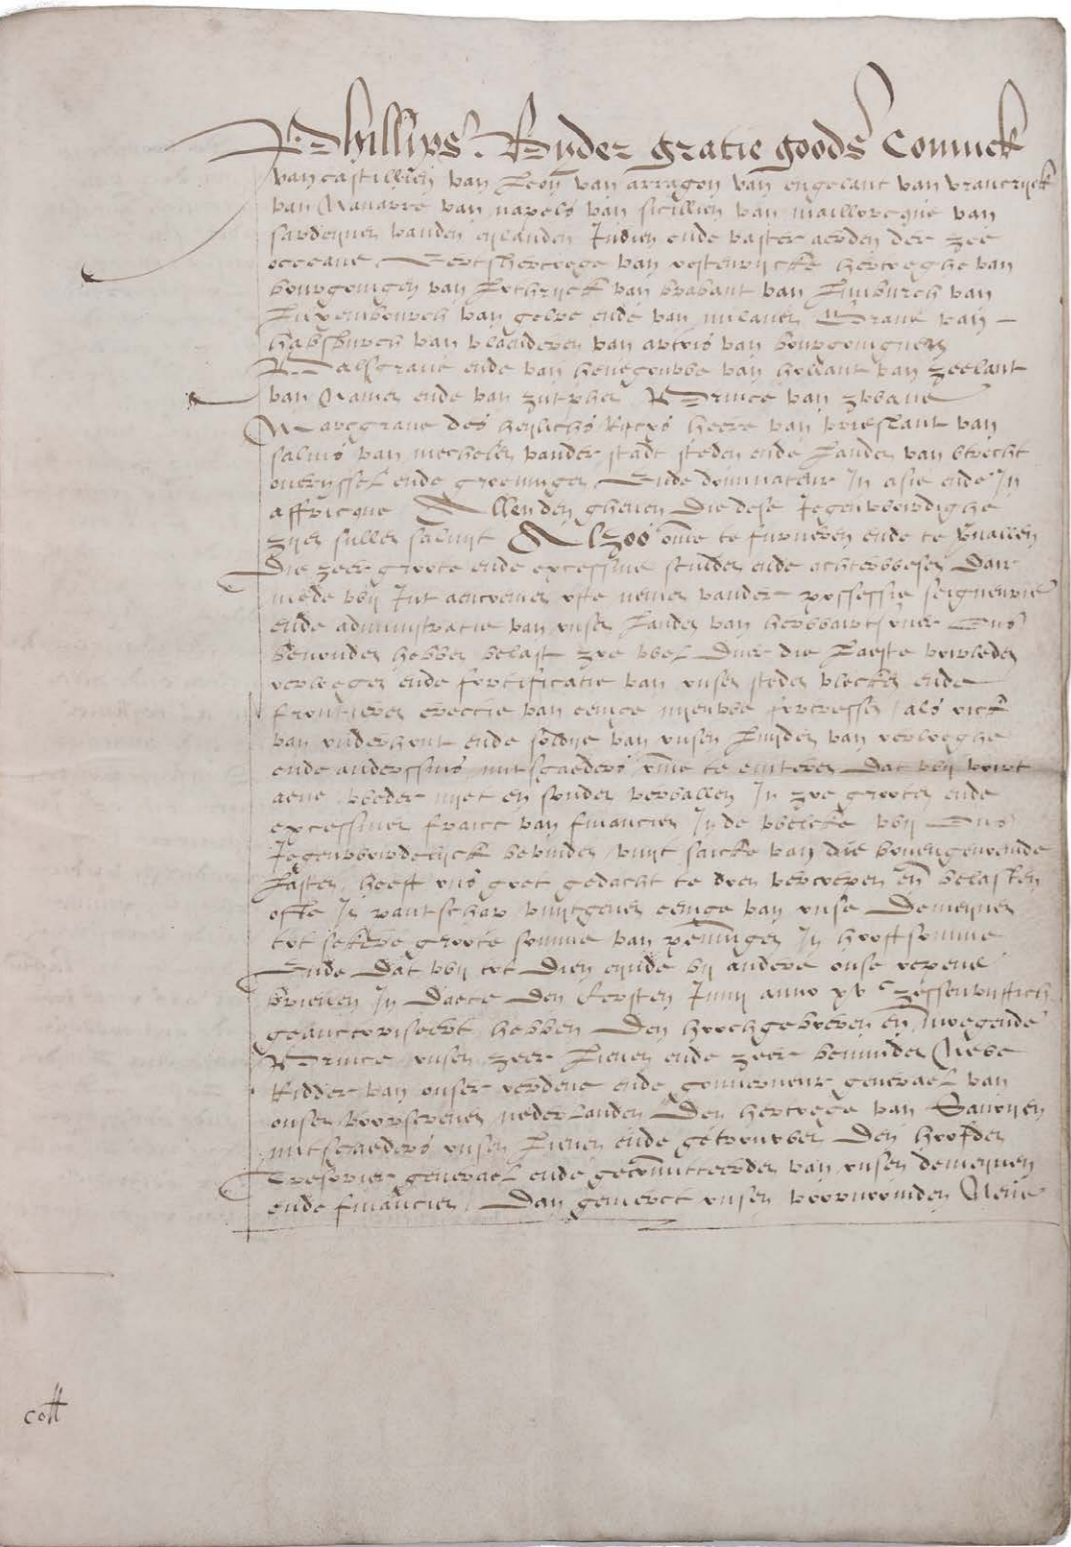 Phillips Byder gratie goods Coninck
van castillien van Leon van arragon van engelant van vranckryck
van Navarre van napels van sicillien van maillorcque van
sardeynen vanden eylanden Indien ende vaster aerden der zee
occeane Eertshertoege van oostenrycke hertoeghe van
bourgoingen van Lothryck van brabant van Limburch van
Luxembourch van gelre ende van milanen Grave van
habsburch van vlaenderen van artois van bourgoingnen
Palsgrave ende van henegouwe van hollant van zeelant
van Namen ende van zutphen Prince van zwave
Marcgrave des heylichs Rycxs heere van vrieslant van
salins van mechelen vander stadt steden ende Landen van utrecht
overyssel ende groeningen Ende dominateur In asie ende In
affricque Allen den ghenen die dese Jegenwoirdighe
zyen sullen saluyt Alzoo ome te furneren ende te
die zeer groote ende excessive sculden ende achterwesen dair
mede wy Int aencomen ofte nemen vander possessie seigneurie
ende administratie van onsen Landen van herwaertsover Ons
bevonden hebben belast zoe wel duer die Laeste voirleden
oirloegen ende fortificatie van onsen steden vlecken ende
frontieren erectie van eenige nyeuwe fortressen als oick
van onderhout ende soldye van onsen Luyden van oirloeghe
ende anderssins mitsgaders ome te eviteren dat wy voirt
aene weder nyet en souden vervallen In zoe grooten ende
excessiven fraict van financien In de welcke wy Ons
Jegenwoirdelyck bevinden vuyt saicke van die bovengenoemde
Lasten heeft ons goet gedacht te doen vercoopen en belasten
ofte In pantschap vuytgeven eenige van onse Demeynen
tot sekere groote somme van penningen In hooftsomme
Ende dat wy tot dien eynde by andere onse opene
brieven In daete den Eersten Junij anno xvc zessenvyftich
geauctoriseert hebben den hoochgeboren en mogende
Prince onsen zeer Lieven ende zeer beminden Neve
Ridder van onser ordene ende gouverneur generael van
onsen voorscreven nederlanden den hertoege van Savoyen
mitsgaders onsen Lieven ende getrouwen den hoofden
Tresorier generael ende gecommitteerden van onsen demeynen
ende financien Dan gemerct onsen voornoemden Neve
coll